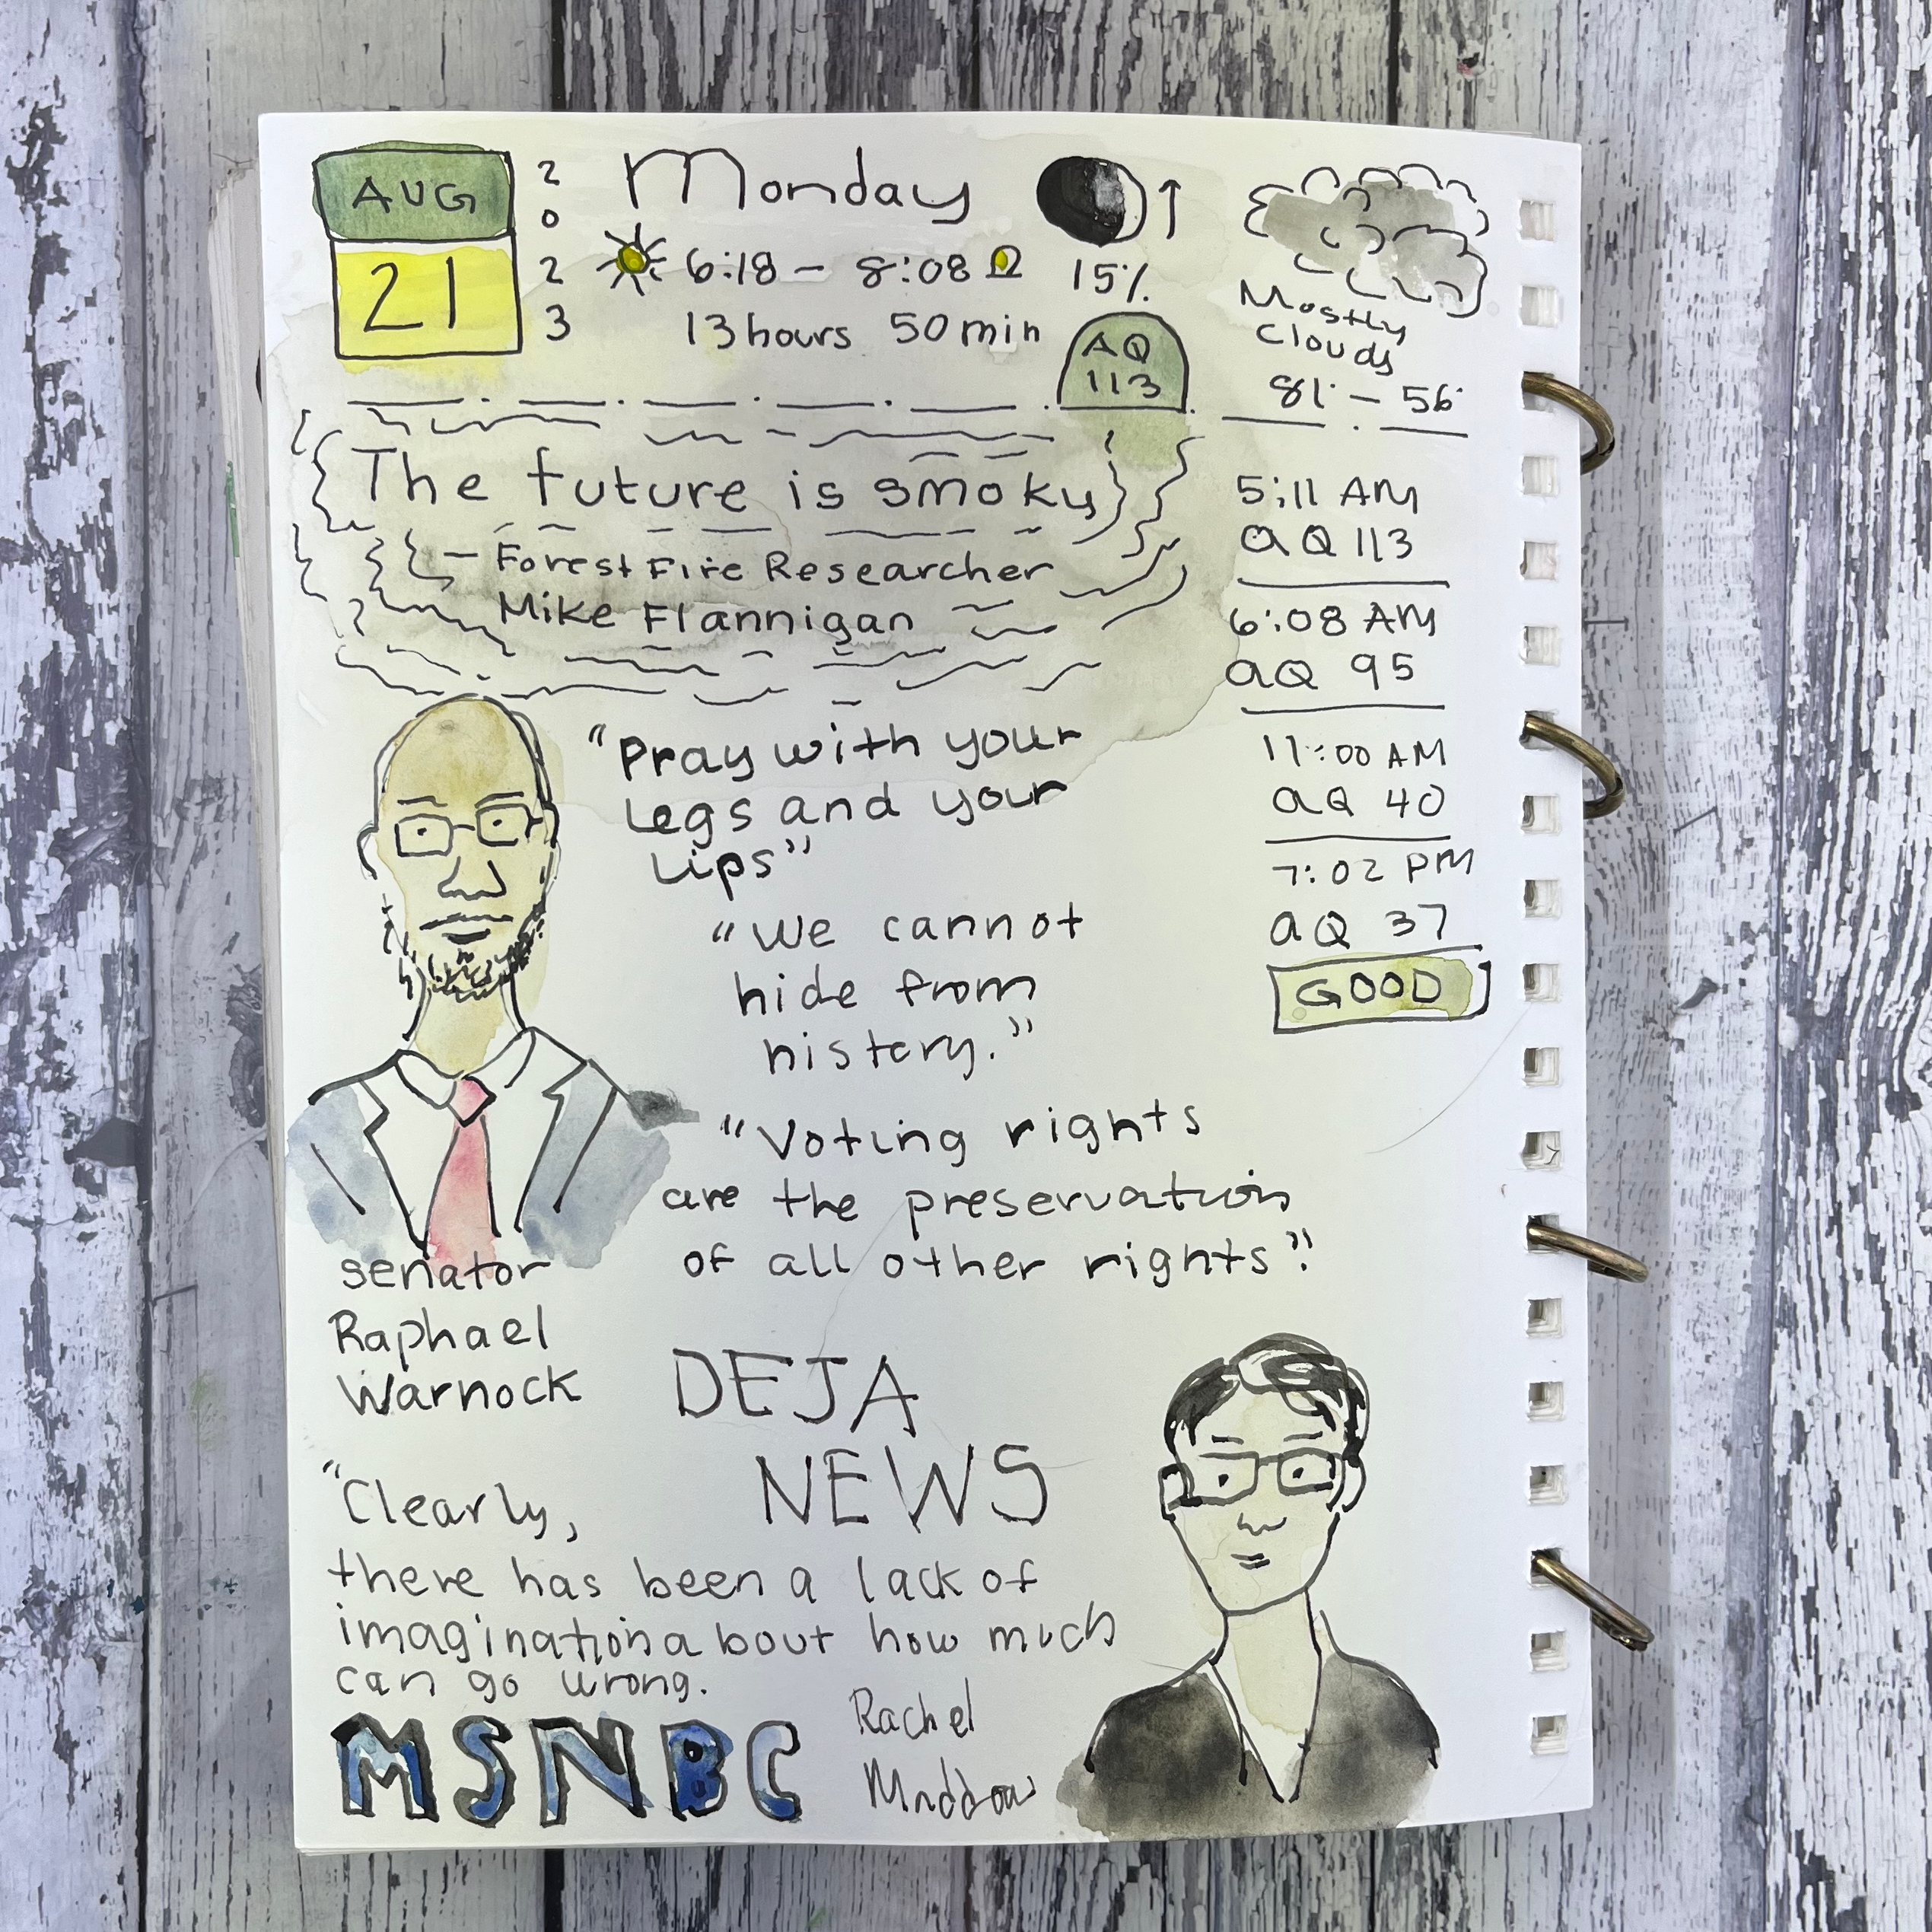 AUG
21
2
0
2
3
Monday
6:18 - 8:08
13 hours 50 min
15%
AQ
113
Mostly
Clouds
81° - 56°
The future is smoky
- Forest Fire Researcher
Mike Flannigan
5:11 AM
AQ 113
6:08 AM
AQ 95
11:00 AM
AQ 40
7:02 PM
AQ 37
GOOD
"Pray with your
Legs and your
Lips"
"We cannot
hide from
history."
"Voting rights
are the preservation
of all other rights".
senator
Raphael
Warnock
DEJA
NEWS
"Clearly,
there has been a lack of
imagination about how much
can go wrong.
MSNBC
Rachel
Maddow